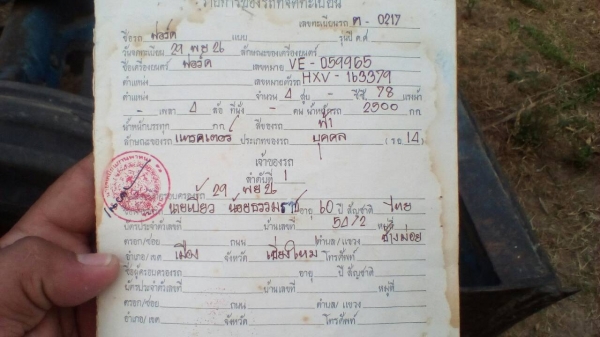 รายการของรถที่จดทะเบียน
เลขทะเบียนรถ ต - 0217
ชื่อรถ ฟอร์ด แบบ รุ่นปี ค.ศ.
วันจดทะเบียน 29 พย 26 ลักษณะของเครื่องยนต์
ชื่อเครื่องยนต์ ฟอร์ด เลขหมาย VE - 059965
ตำแหน่ง เลขหมายตัวรถ HXV - 163379
ตำแหน่ง จำนวน 4 สูบ - ซีซี 78 แรงม้า
- เพลา 4 ล้อ ที่นั่ง - คน น้ำหนักรถ 2500 กก.
น้ำหนักบรรทุก กก. สีของรถ ฟ้า
ลักษณะของรถ แทรคเตอร์ ประเภทของรถ บุคคล (รย 14)
เจ้าของรถ
ลำดับที่ 1
ครอบครองรถ 29 พย 26
นายเปี้ยว น้อยธรรมราช อายุ 60 ปี สัญชาติ ไทย
บัตรประจำตัวเลขที่ บ้านเลขที่ 54/2 หมู่ที่
ตรอก/ซอย ถนน ตำบล/แขวง ช้างม่อย
อำเภอ/เขต เมือง จังหวัด เชียงใหม่ โทรศัพท์
ชื่อผู้ครอบครองรถ อายุ ปี สัญชาติ
บัตรประจำตัวเลขที่ บ้านเลขที่ หมู่ที่
ตรอก/ซอย ถนน ตำบล/แขวง
อำเภอ/เขต จังหวัด โทรศัพท์